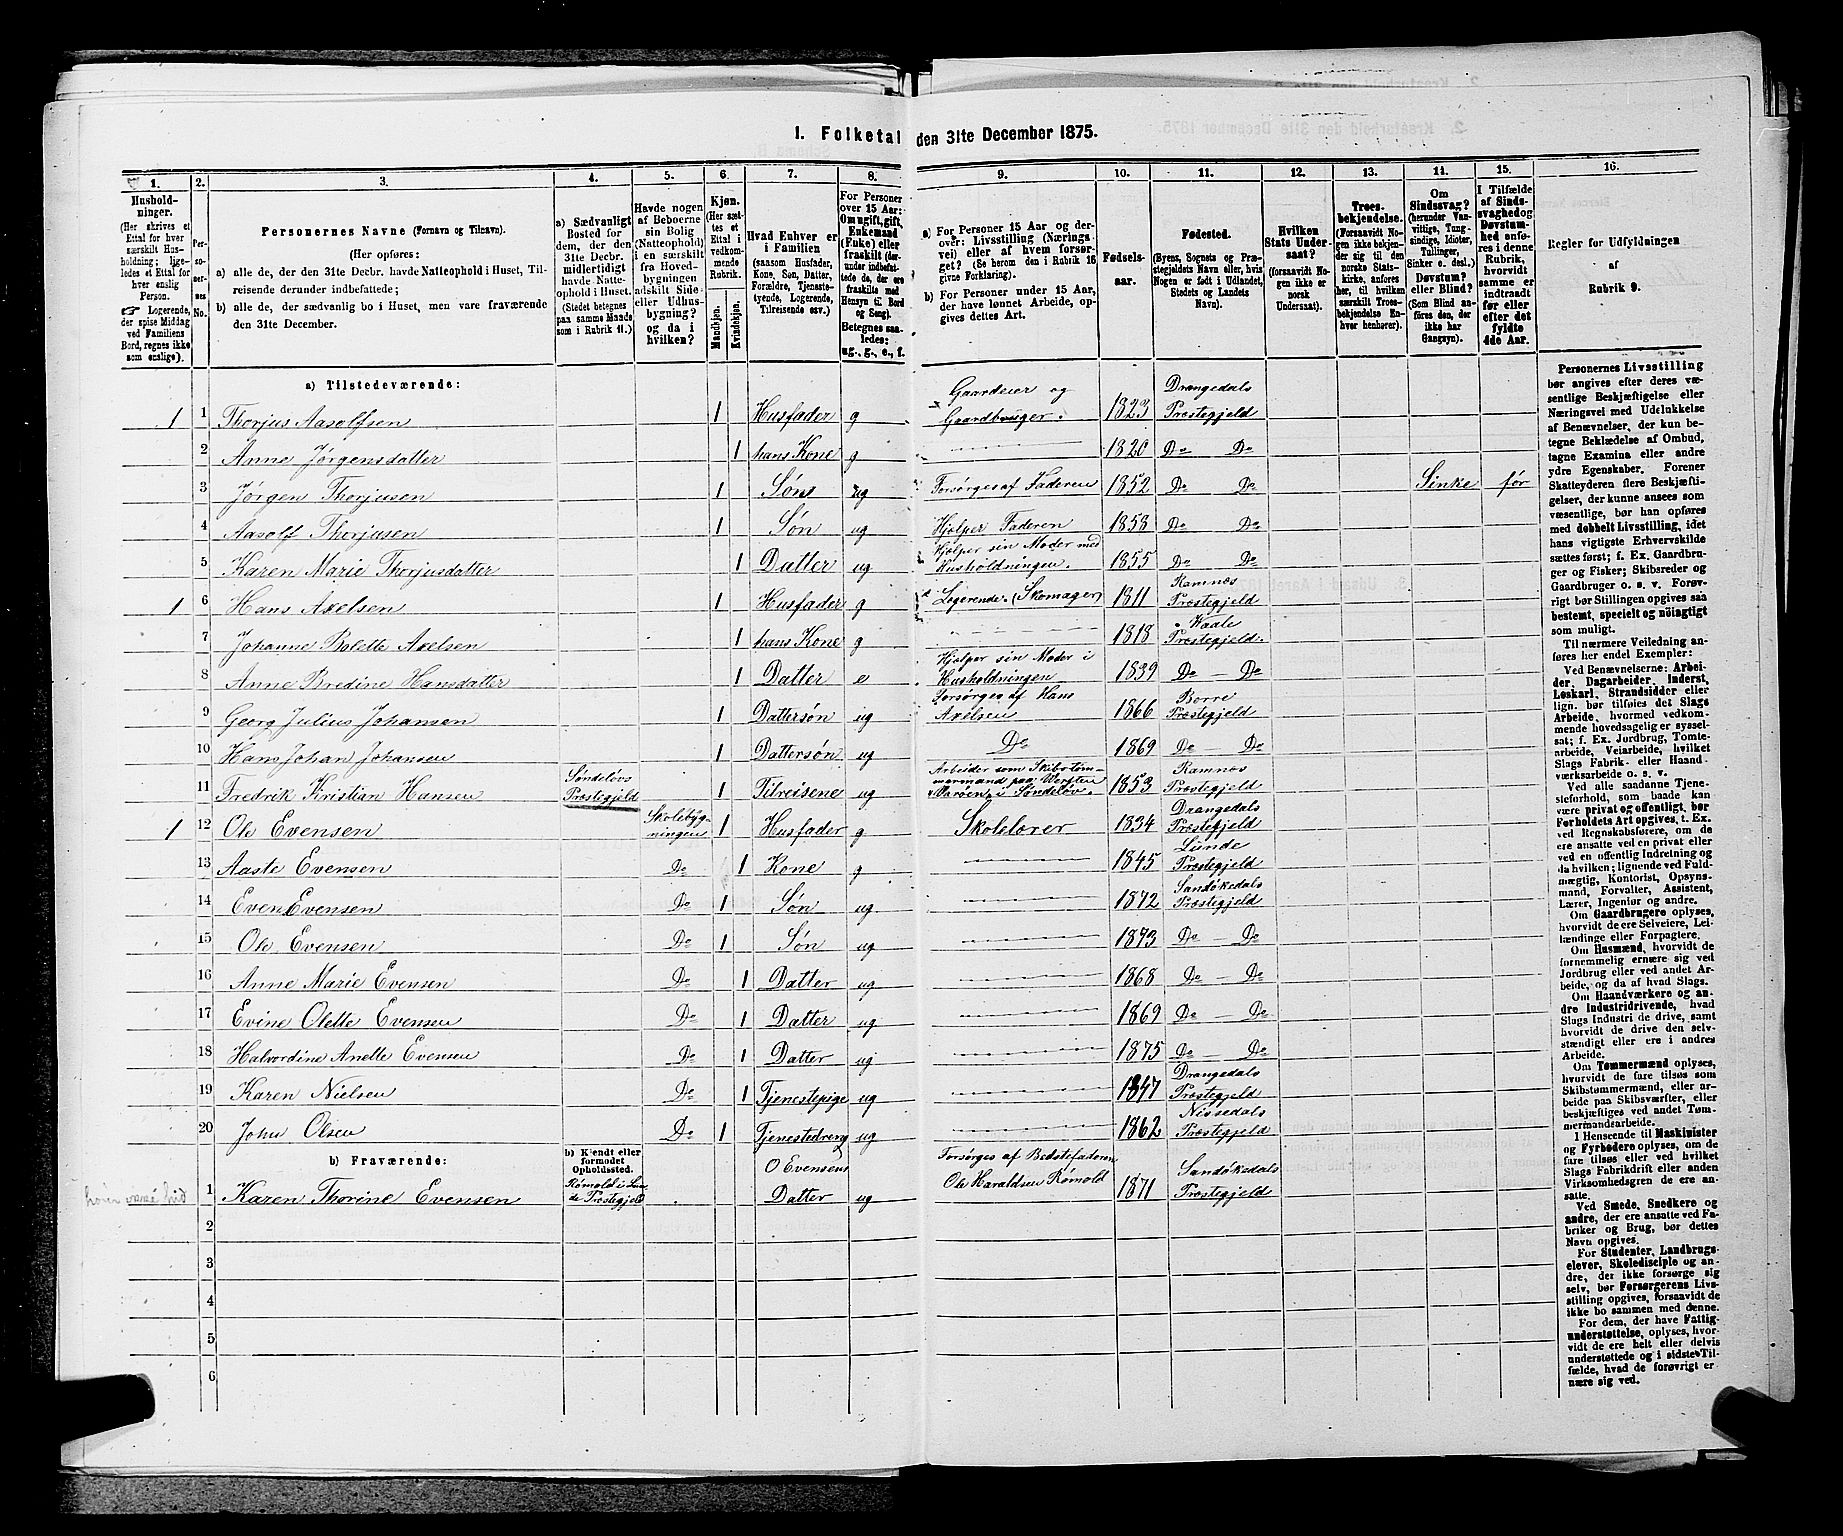 I. Folketal den 31te December 1875.
1. 2. 3. 4. 5. 6. 7. 8. 9. 10. 11. 12. 13. 14. 15. 16.
Husholdninger.
(Her skrives et
Ettal for hver
særskilt Husholdning;
ligeledes et Ettal for
hver enslig
Person.
☞ Logerende,
der spise Middag
ved Familiens
Bord, regnes ikke
som enslige).
Personernes No.
Personernes Navne (Fornavn og Tilnavn).
(Her opføres:
a) alle de, der den 31te Decbr. havde Natteophold i Huset, Tilreisende derunder indbefattede;
b) alle de, der sædvanlig bo i Huset, men vare fraværende
den 31te December.
a) Sædvanligt
Bosted for
dem, der den
31te Decbr.
midlertidigt
havde Natteophold i Huset.
(Stedet betegnes
paa samme Maade
som i Rubrik 11.)
Havde nogen
af Beboerne
sin Bolig
(Natteophold)
i en særskilt
fra Hovedbygningen
adskilt Side- eller Udhusbygning?
og da i
hvilken?
Kjøn.
(Her sættes et
Ettal i
vedkommende
Rubrik.)
Mandkjøn.
Kvindekjøn.
Hvad Enhver er
i Familien
(saasom Husfader,
Kone, Søn, Datter,
Forældre, Tjenestetyende, Logerende,
Tilreisende osv.)
For Personer
over 15 Aar:
Om ugift, gift,
Enkemand
(Enke) eller
fraskilt (derunder indbefattede de, der
ere fraskilte med
Hensyn til Bord
og Seng).
Betegnes saaledes:
ug., g., e., f.
a) For Personer 15 Aar og derover: Livsstilling (Næringsvei) eller af hvem forsørget? (Se herom den i Rubrik 16
givne Forklaring).
b) For Personer under 15 Aar,
der have lønnet Arbeide, opgives dettes Art.
Fødselsaar.
Fødested.
(Byens, Sognets og Præstegjeldets Navn eller, hvis
Nogen er født i Udlandet,
Stedets og Landets
Navn).
Hvilken
Stats Undersaat?
(forsaavidt Nogen ikke er
norsk
Undersaat).
Troesbekjendelse.
(Forsaavidt Nogen ikke bekjender sig til den
norske Statskirke, anføres
her, til hvilken
særskilt Troesbekjendelse Enhver henhører).
Om
Sindssvag?
(herunder Vanvittige, Tungsindige, Idioter,
Tullinger,
Sinker o. desl.)
Døvstum?
eller Blind?
(Som Blind anføres den, der
ikke har
Gangsyn).
I Tilfælde
af Sindssvaghed og
Døvstumhed anføres i denne
Rubrik,
hvorvidt
samme er
indtraadt
før eller
efter det
fyldte
4de Aar.
Regler for Udfyldningen
af
Rubrik 9.
a) Tilstedeværende:
1 1 Thorjus Aasolfsen 1 Husfader g Gaardeier og Gaardbruger. 1823 Drangedals Præstegjeld
2 Anne Jørgensdatter 1 hans Kone g 1820 Do Do
3 Jørgen Thorjusen 1 Søn ug Forsørges af Faderen 1852 Do Do Sinke før
4 Aasolf Thorjusen 1 Søn ug Hjelper Faderen 1858 Do Do
5 Karen Marie Thorjusdatter 1 Datter ug Hjelper sin Moder med Husholdningen. 1855 Do Do
1 6 Hans Axelsen 1 Husfader g Logerende. (Skomager) 1811 Ramnæs Præstegjeld
7 Johanne Bolette Axelsen 1 hans Kone g 1818 Vaale Præstegjeld.
8 Anne Bredine Hansdatter 1 Datter e Hjelper sin Moder i Husholdningen 1839 Do Do
9 Georg Julius Johansen 1 Dattersøn ug Forsørges af Hans Axelsen 1866 Borre Præstegjeld
10 Hans Johan Johansen 1 Dattersøn ug Do 1869 Do Do
11 Fredrik Kristian Hansen Søndeløvs Præstegjeld 1 Tilreisene ug Arbeider som Skibstømmermand paa Werften Marøen i Søndeløv. 1853 Ramnæs Præstegjeld
1 12 Ole Evensen Skolebygningen 1 Husfader g Skolelærer 1834 Drangedals Præstegjeld
13 Aaste Evensen Do 1 Kone g 1845 Lunde Præstegjeld
14 Even Evensen Do 1 Søn ug 1872 Sandøkedals Præstegjeld
15 Ole Evensen Do 1 Søn ug 1873 Do Do
16 Anne Marie Evensen Do 1 Datter ug 1868 Do Do
17 Evine Olette Evensen Do 1 Datter ug 1869 Do Do
18 Halvordine Anette Evensen Do 1 Datter ug 1875 Do Do
19 Karen Nielsen Do 1 Tjenestepige ug 1847 Drangedals Præstegjeld
20 John Olsen Do 1 Tjenestedreng ug 1862 Nissedals Præstegjeld
b) Fraværende:
b) Kjendt eller
formodet
Opholdssted.
1 Karen Thorine Evensen Rømold i Lunde Præstegjeld O Evensens Datter ug Forsørges af Bedstefaderen Ole Haraldsen Rømold 1871 Sandøkedals Præstegjeld
2
3
4
5
6
Personernes Livsstilling
bør angives efter deres væsentlige Beskjæftigelse eller
Næringsvei med Udelukkelse
af Benævnelser, der kun betegne Beklædelse af Ombud,
tagne Examina eller andre
ydre Egenskaber. Forener
Skatteyderen flere Beskjæftigelser, der kunne ansees som
væsentlige, bør han opføres
med dobbelt Livsstilling, idet
hans vigtigste Erhvervskilde
sættes først; f. Ex. Gaardbruger og Fisker; Skibsreder og
Gaardbruger o. s. v. Forøvrigt bør Stillingen opgives saa
bestemt, specielt og nöiagtigt
som muligt.
Til nærmere Veiledning anføres her endel Exempler:
Ved Benævnelserne: Arbeider, Dagarbeider, Inderst,
Løskarl, Strandsidder eller
lign. bør tilføies det Slags
Arbeide, hvormed vedkommende hovedsagelig er sysselsat; f. Ex. Jordbrug, Tomtearbeide, Veiarbeide, hvilket
Slags Fabrik- eller Haandværksarbeide o. s. v.
Ved alle saadanne Tjenesteforhold, som baade kan
være privat og offentligt, bør
Forholdets Art opgives, t. Ex.
ved Regnskabsførere, om de
ere ansatte ved en privat eller
ved en offentlig Indretning og
da hvilken; lignende ved Fuldmægtig, Kontorist, Opsynsmand, Forvalter, Assistent,
Lærer, Ingeniør og andre.
Om Gaardbrugere oplyses,
hvorvidt de ere Selveiere, Leilændinge eller Forpagtere.
Om Husmænd, hvorvidt de
fornemmelig ernære sig ved
Jordbrug eller ved andet Arbeide, og da af hvad Slags.
Om Haandværkere og andre Industridrivende, hvad
Slags Industri de drive, samt
hvorvidt de drive den selvstændigt eller ere i andres
Arbeide.
Om Tømmermænd oplyses,
hvorvidt de fare tilsøs som
Skibstømmermænd, eller arbeide paa Skibsværfter, eller
beskjæftiges ved andet Tømmermandsarbeide.
I Henseende til Maskinister
og Fyrbødere oplyses, om de
fare tilsøs eller ved hvilket
Slags Fabrikdrift eller anden
Virksomhedsgren de ere ansatte.
Ved Smede, Snedkere og
andre, der ere ansatte ved Fabriker og Brug, bør dettes
Navn opgives.
For Studenter, Landbrugselever, Skoledisciple og andre, der ikke forsørge sig
selv, bør Forsørgerens Livsstilling opgives, forsaavidt de
ikke bo sammen med denne.
For dem, der have Fattigunderstøttelse, oplyses, hvorvidt de ere helt eller delvis
understøttede og i sidste Tilfælde, hvad de forøvrigt ernære sig ved.